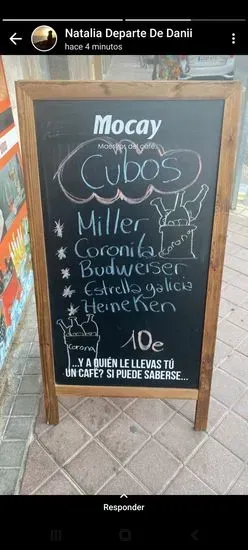 Natalia Departe De Danii
hace 4 minutos
Mocay
Maestros del café
Cubos
* Miller
* Coronita
* Budweiser
* Estrella galicia
* Heineken
Corona
Corona
10e
...Y A QUIÉN LE LLEVAS TÚ
UN CAFÉ? SI PUEDE SABERSE...
Responder